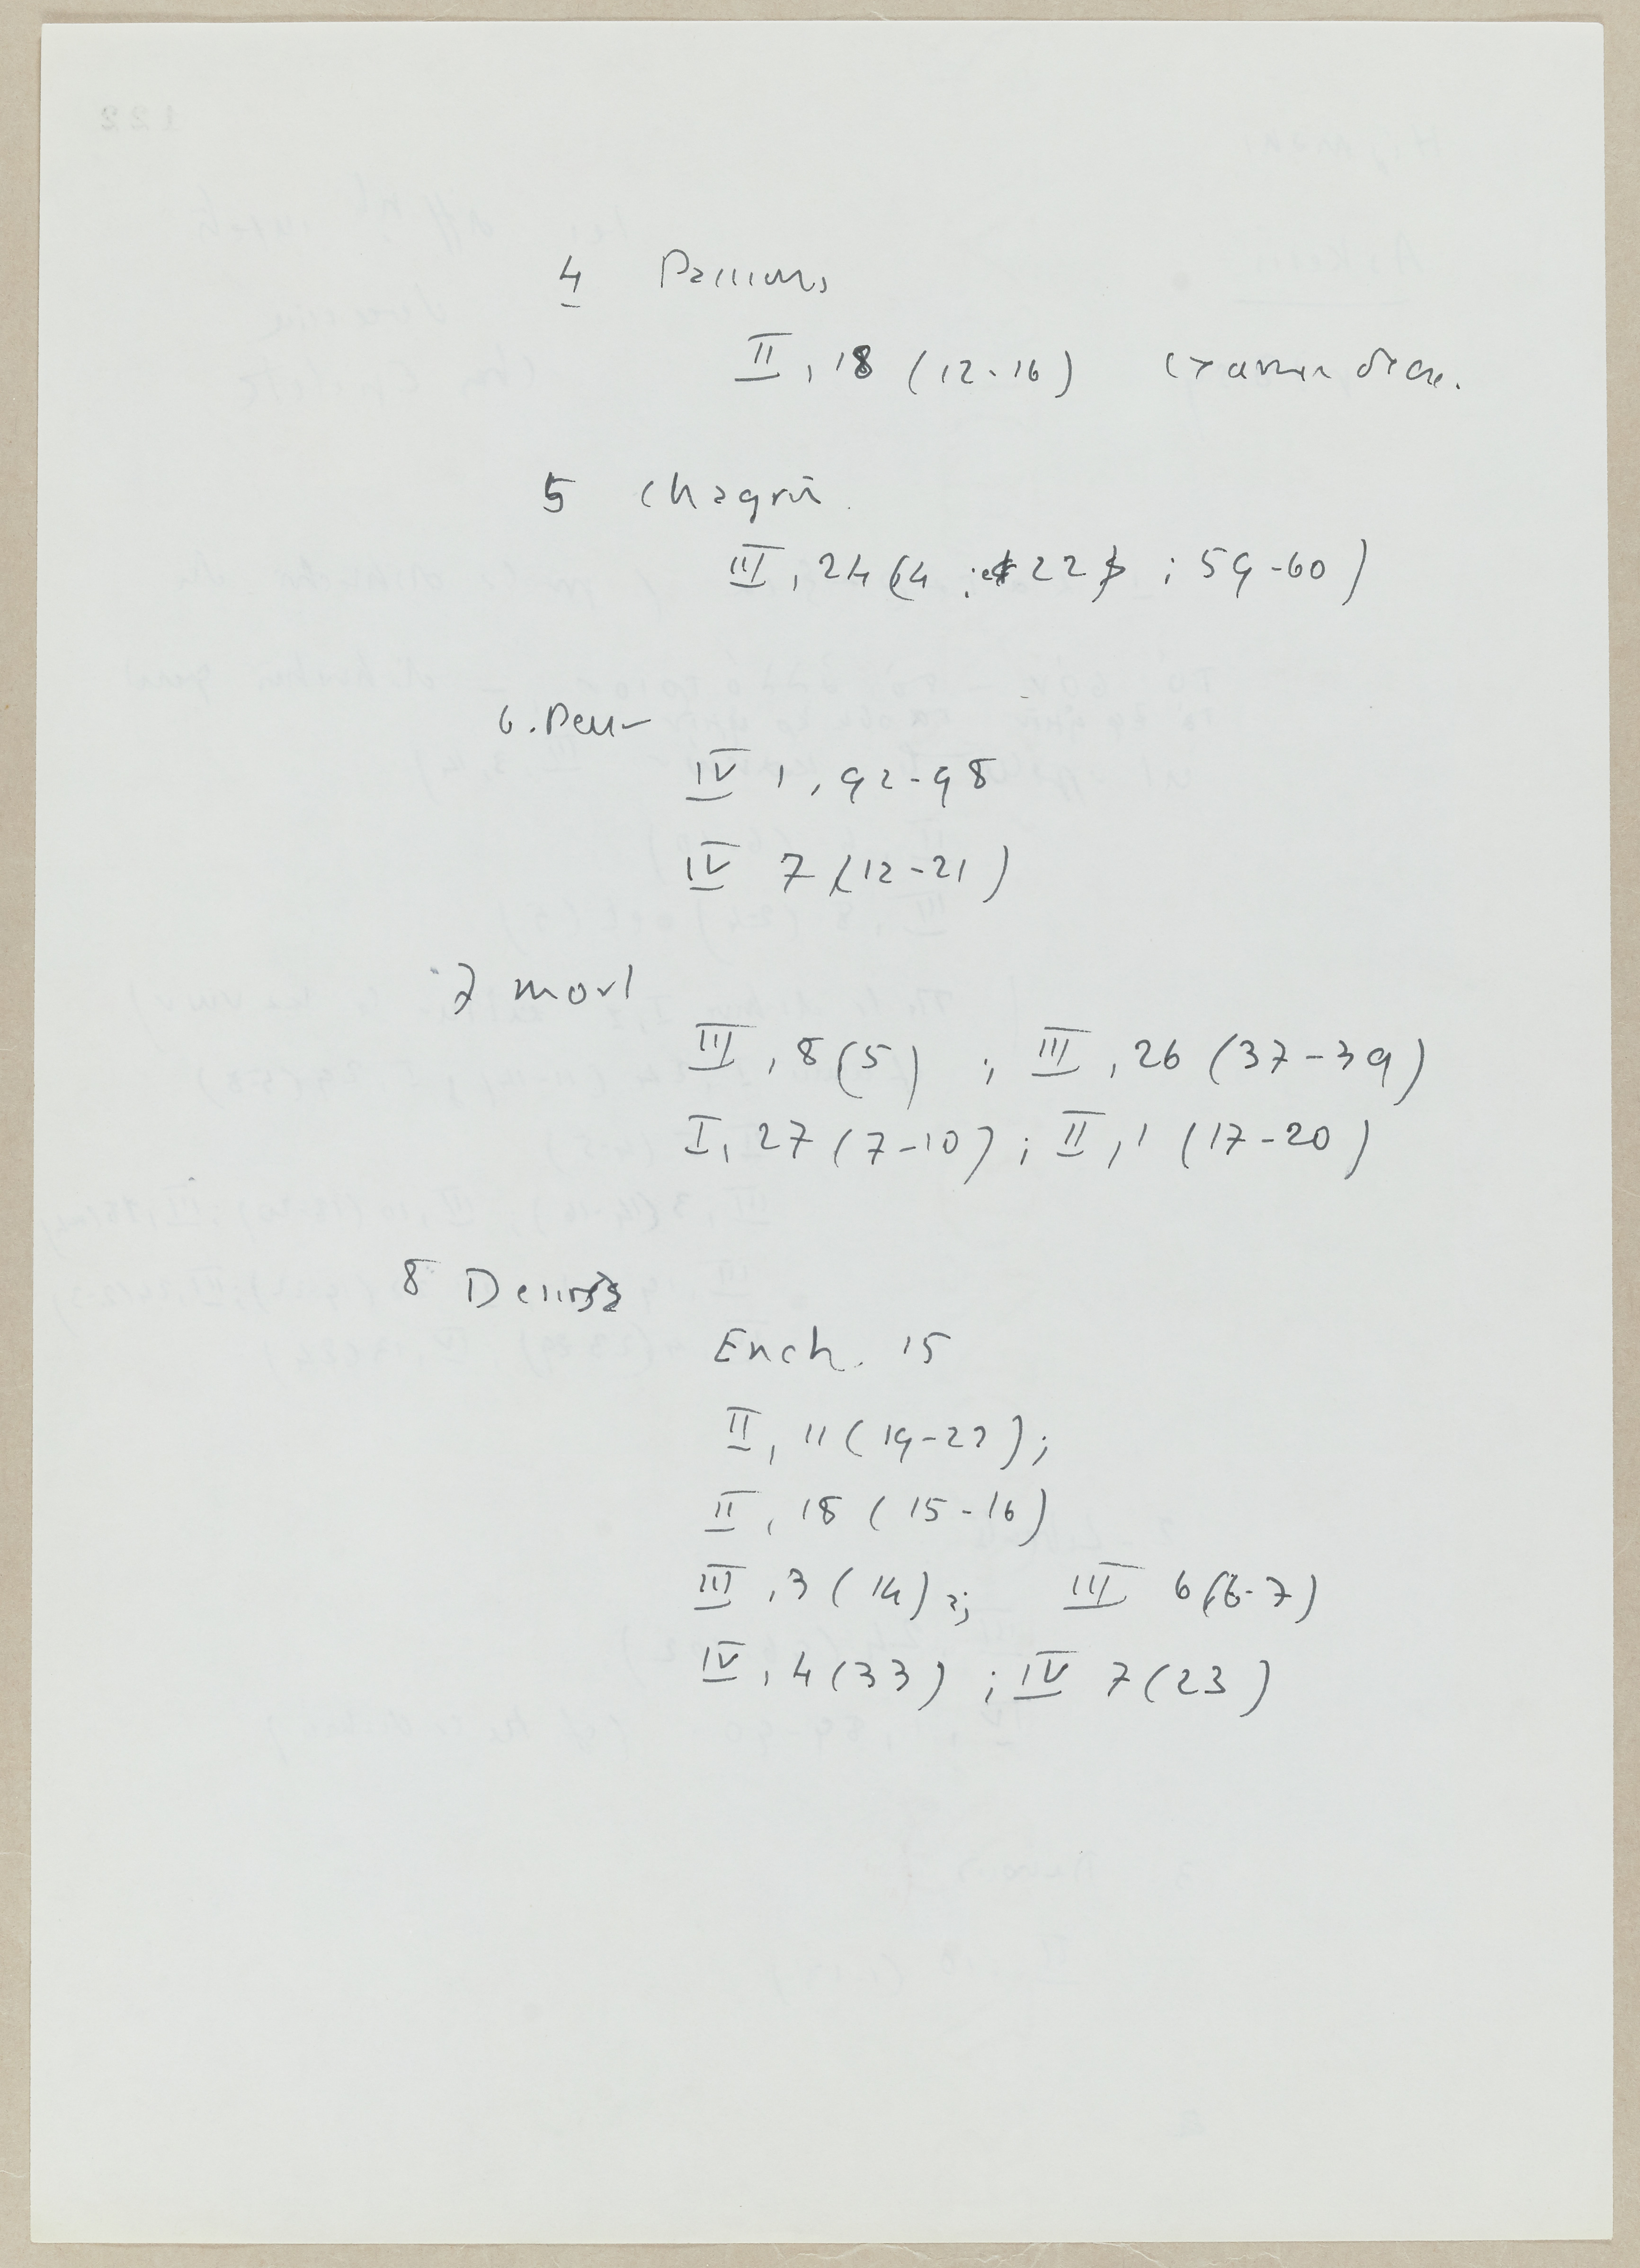 4 Passions
II, 18 (12-16) examen de cs.
5 chagrin.
III, 24 (4 ; et 22 ; 59-60)
6. Peur
IV 1, 92-98
IV 7 (12-21)
7 mort
III, 8 (5) ; III, 26 (37-39)
I, 27 (7-10) ; II, 1 (17-20)
8 Desirs
Ench. 15
II, 11 (19-22);
II, 18 (15-16)
III, 3 (14) ; III 6 (6-7)
IV, 4 (33) ; IV 7 (23)